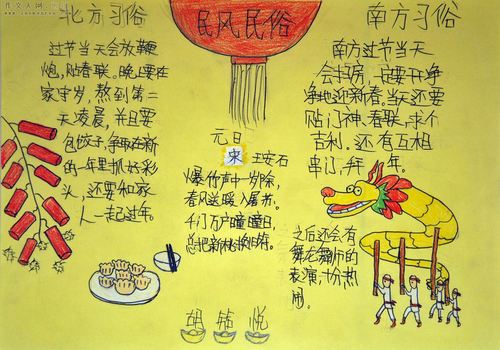 作文人网
民风民俗
北方习俗
过节当天会放鞭
炮,贴春联。晚上要在
家守岁,熬到第二
天凌晨,并且要
包饺子,争取在新
的一年里抓好彩
头,还要和家
人一起过年。
元日
宋 王安石
爆竹声中一岁除,
春风送暖入屠苏。
千门万户曈曈日,
总把新桃换旧符。
南方习俗
南方过节当天
会扫房,一定要干净
净地迎新春。当天还要
贴门神、春联,求个
吉利。还有互相
串门,拜年。
之后还会有
舞龙舞狮的
表演,十分热
闹。
悦